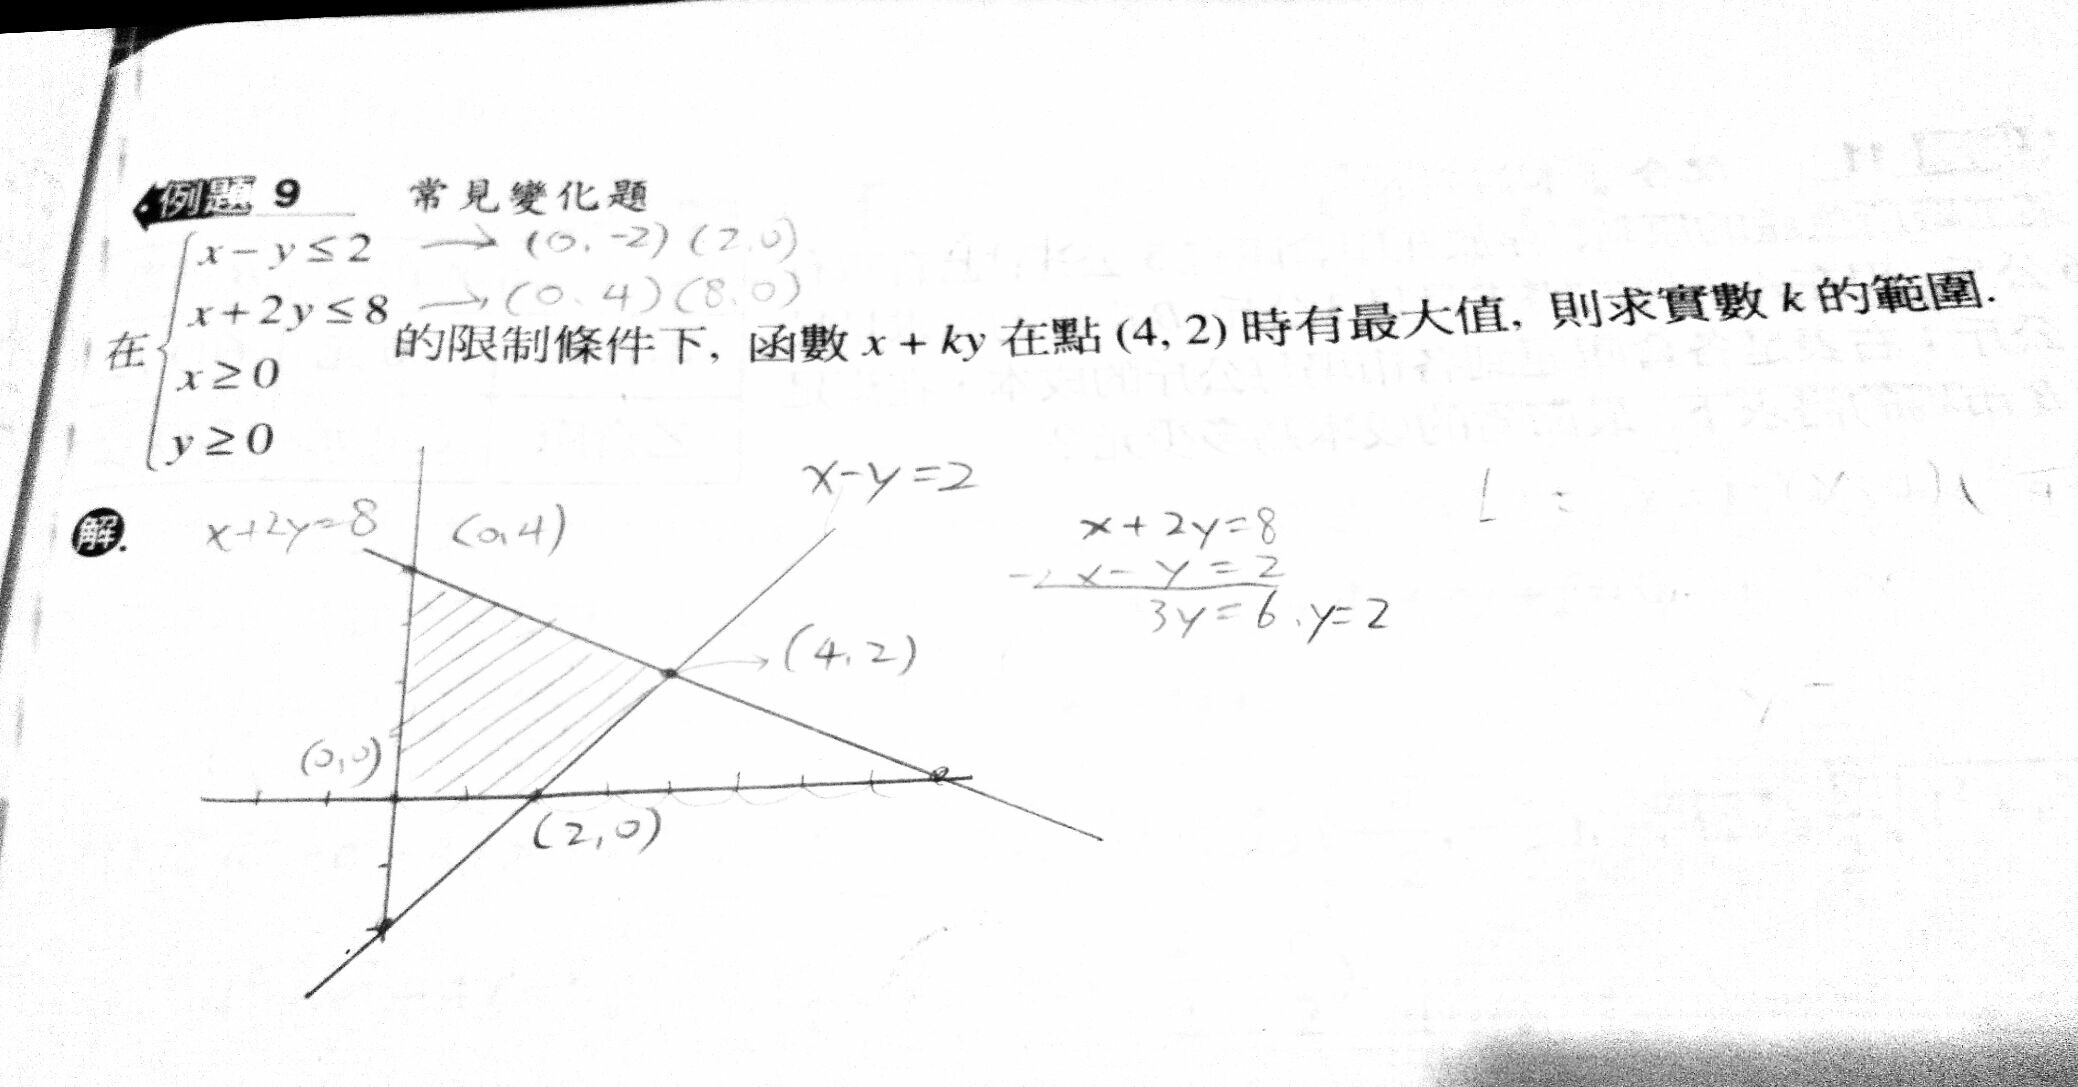 例題 9 常見變化題
x − y ≤ 2 → (0, -2) (2, 0)
x + 2y ≤ 8 → (0, 4) (8, 0)
在 的限制條件下, 函數 x + ky 在點 (4, 2) 時有最大值, 則求實數 k 的範圍.
x ≥ 0
y ≥ 0
解.
x+2y=8
(0,4)
x-y=2
x+2y=8
x-y=2
3y=6, y=2
(4,2)
(0,0)
(2,0)